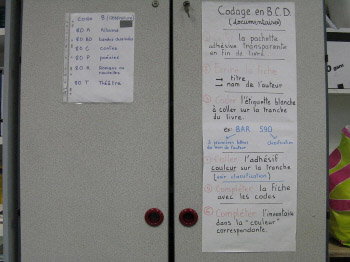 Code
80 A Albums
80 BD bandes dessinées
80 C Contes
80 P poésies
80 R Romans ou nouvelles
80 T Théâtre
Codage en B.C.D.
(documentaires)
la pochette
adhésive transparente
en fin de livre.
fiche
→ titre
→ nom de l'auteur
l'étiquette blanche
à coller sur la tranche
du livre.
ex: BAR 590
3 premières lettres
du nom de l'auteur
Classification
Coller l'adhésif
couleur sur la tranche
(voir classification)
Compléter la fiche
avec les codes
Compléter l'inventaire
dans la "couleur"
correspondante.